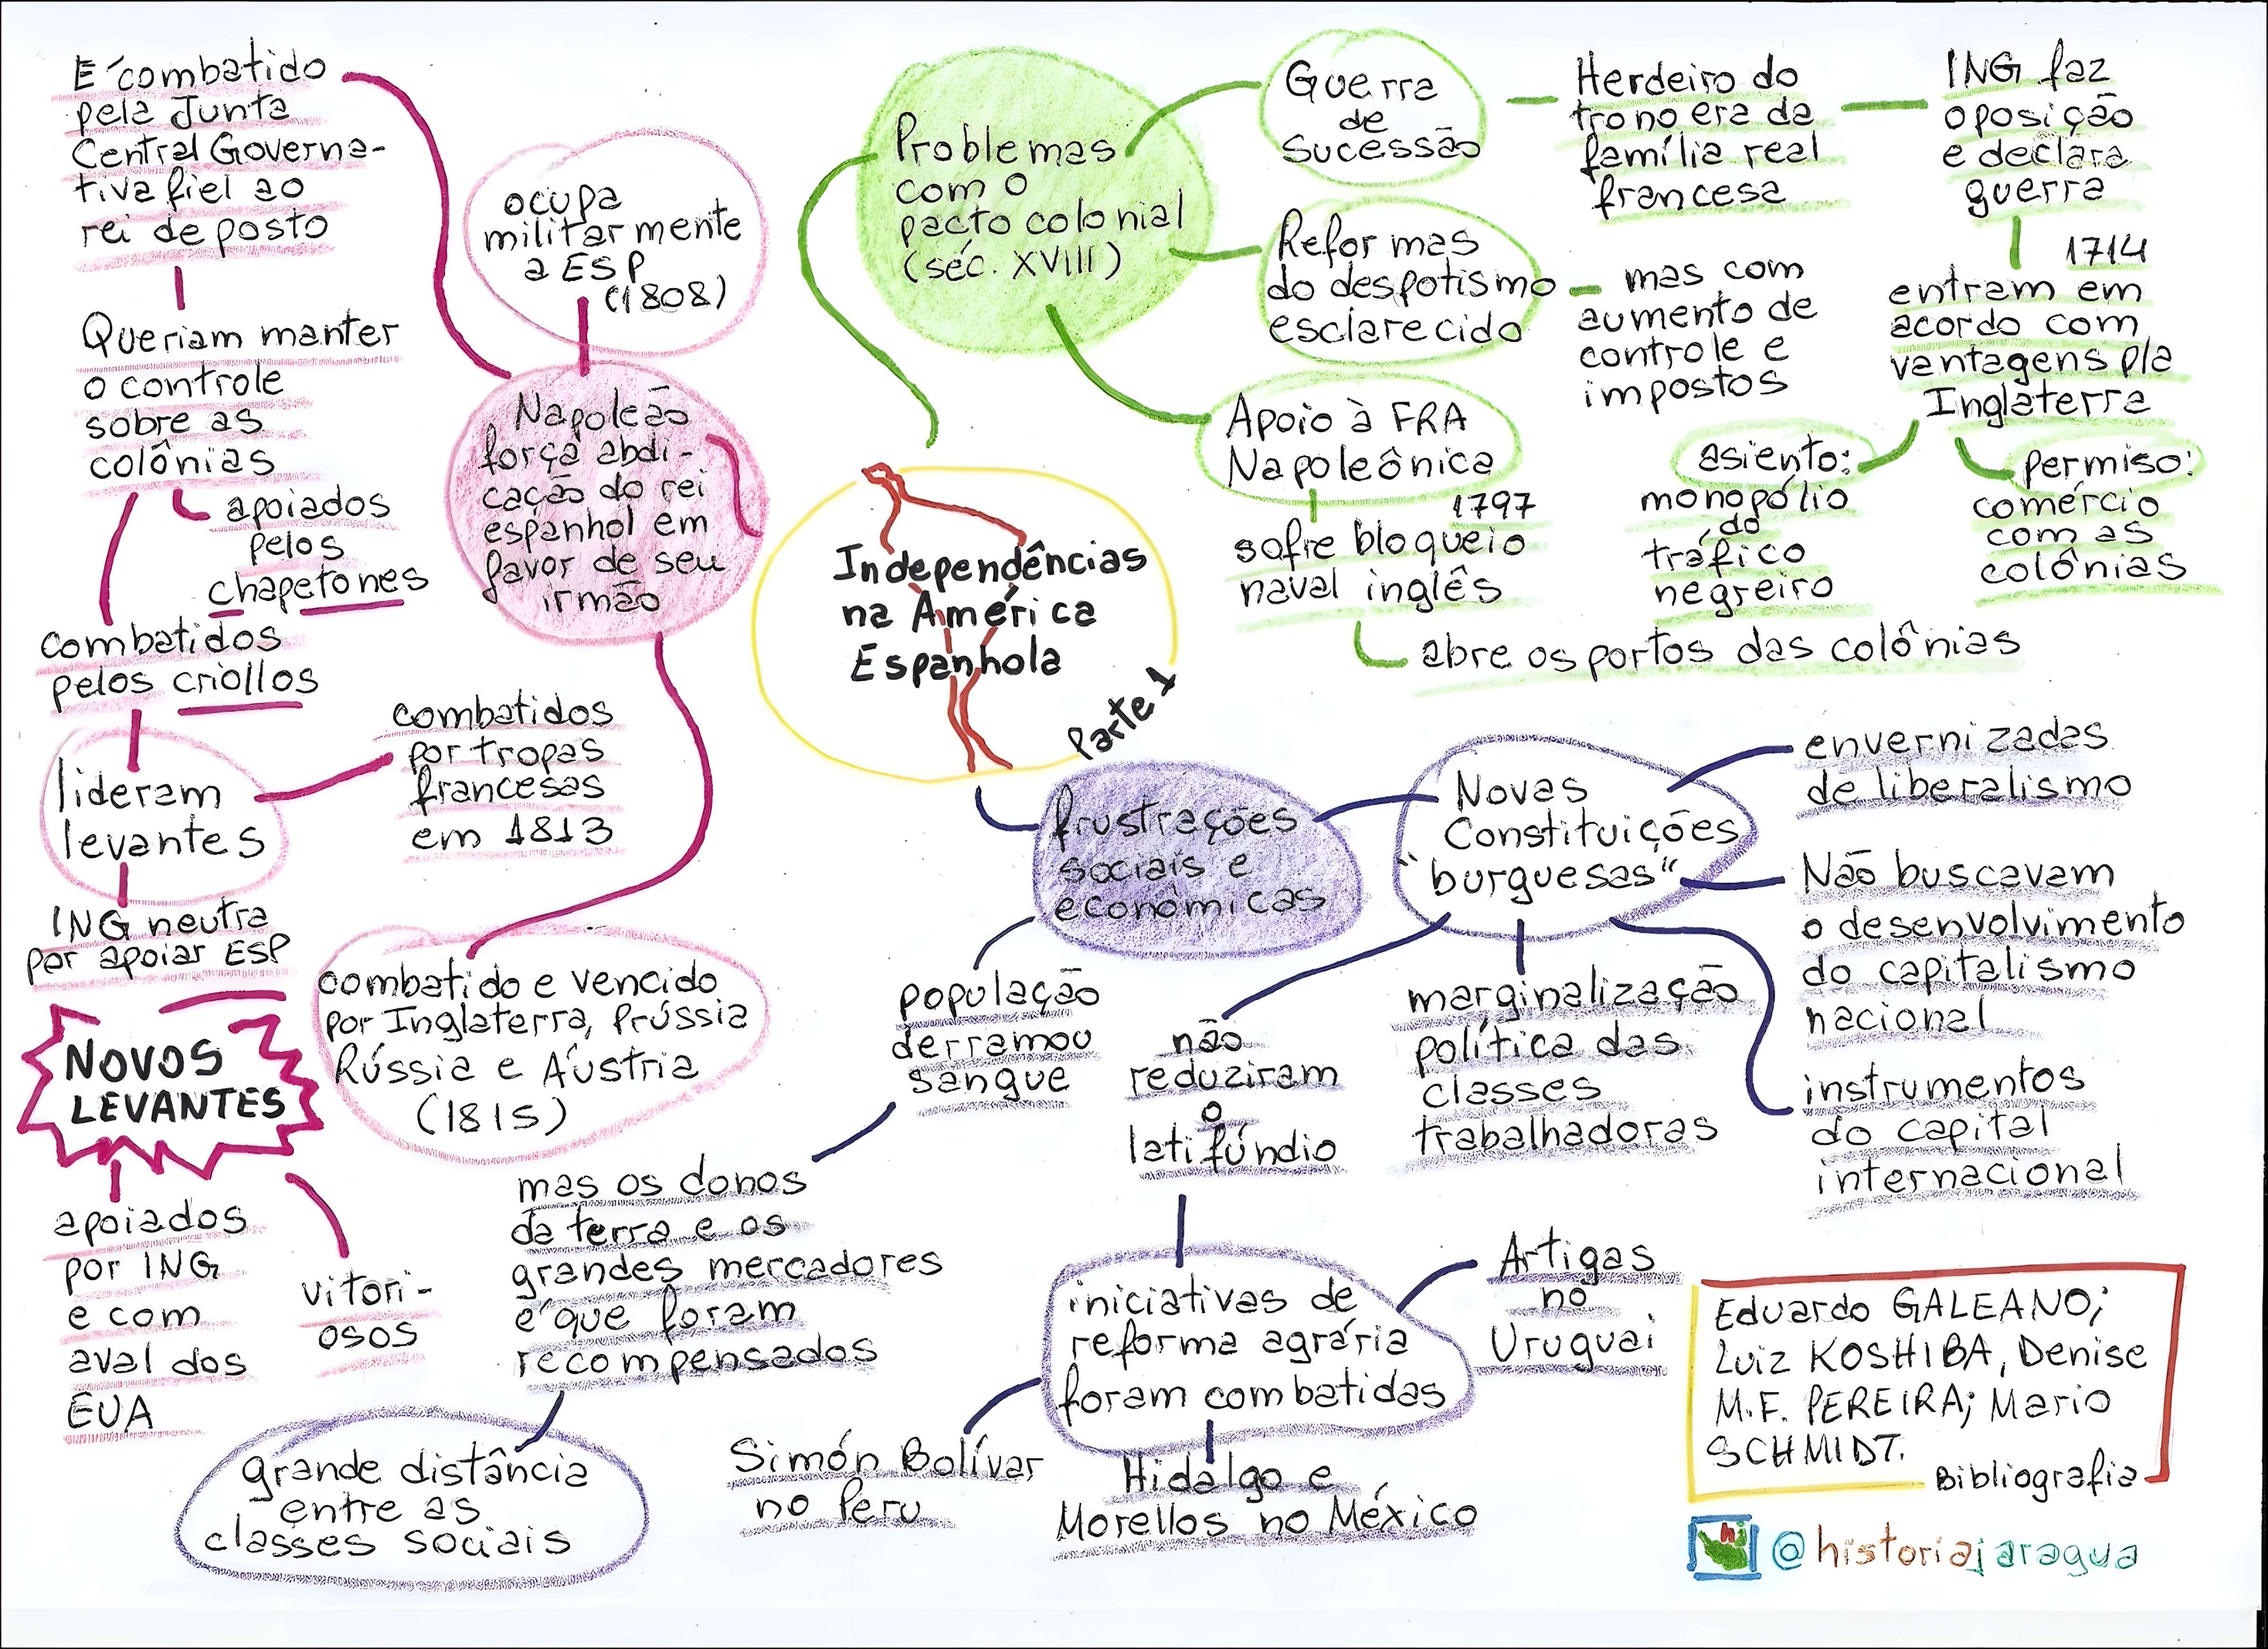 É combatido
pela Junta
Central Governa-
tiva fiel ao
rei deposto
Queriam manter
o controle
sobre as
colônias
apoiados
pelos
chapetones
combatidos
pelos criollos
lideram
levantes
combatidos
por tropas
francesas
em 1813
ING neutra
por apoiar ESP
NOVOS
LEVANTES
apoiados
por ING
e com
aval dos
EUA
vitori-
osos
ocupa
militarmente
a ESP
(1808)
Napoleão
força abdi-
cação do rei
espanhol em
favor de seu
irmão
combatido e vencido
por Inglaterra, Prússia
Rússia e Áustria
(1815)
Problemas
com o
pacto colonial
(séc. XVIII)
Guerra
de
Sucessão
Herdeiro do
trono era da
família real
francesa
ING faz
oposição
e declara
guerra
1714
entram em
acordo com
vantagens p/a
Inglaterra
asiento:
monopólio
do
tráfico
negreiro
permiso:
comércio
com as
colônias
Reformas
do despotismo
esclarecido
mas com
aumento de
controle e
impostos
Apoio à FRA
Napoleônica
1797
sofre bloqueio
naval inglês
abre os portos das colônias
Independências
na América
Espanhola
Parte 1
frustrações
sociais e
econômicas
Novas
Constituições
"burguesas"
envernizadas
de liberalismo
Não buscavam
o desenvolvimento
do capitalismo
nacional
instrumentos
do capital
internacional
marginalização
política das
classes
trabalhadoras
não
reduziram
o
latifúndio
iniciativas de
reforma agrária
foram combatidas
Artigas
no
Uruguai
Hidalgo e
Morellos no México
Simón Bolívar
no Peru
população
derramou
sangue
mas os donos
da terra e os
grandes mercadores
é que foram
recompensados
grande distância
entre as
classes sociais
Eduardo GALEANO;
Luiz KOSHIBA, Denise
M.F. PEREIRA; Mario
SCHMIDT.
Bibliografia
hj
@historiajaragua